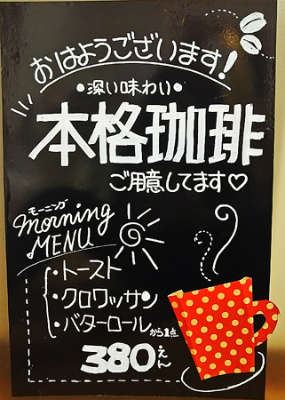 おはようございます!
・深い味わい・
本格珈琲
ご用意してます♡
モーニング
morning
MENU
・トースト
・クロワッサン
・バターロール
から1点
380えん